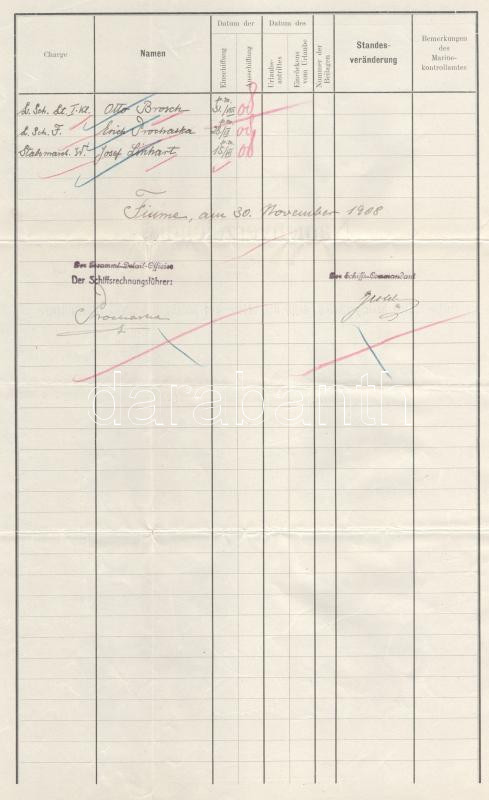 Charge
Namen
Datum der
Einschiffung
Ausschiffung
Datum des
Urlaubs-
antrittes
Einrückens
vom Urlaube
Nummer der
Beilagen
Standes-
veränderung
Bemerkungen
des
Marine-
kontrollamtes
L. Sch. Lt. I. Kl. Otto Brosch p.m. 31./VIII
L. Sch. F. Erich Prochaska p.m.
Stabsmasch. W. Josef Linhart p.m.
Fiume, am 30. November 1908
Der Gesammt-Detail-Officier
Der Schiffsrechnungsführer:
Prochaska
Der Schiffs-Commandant
darabanth